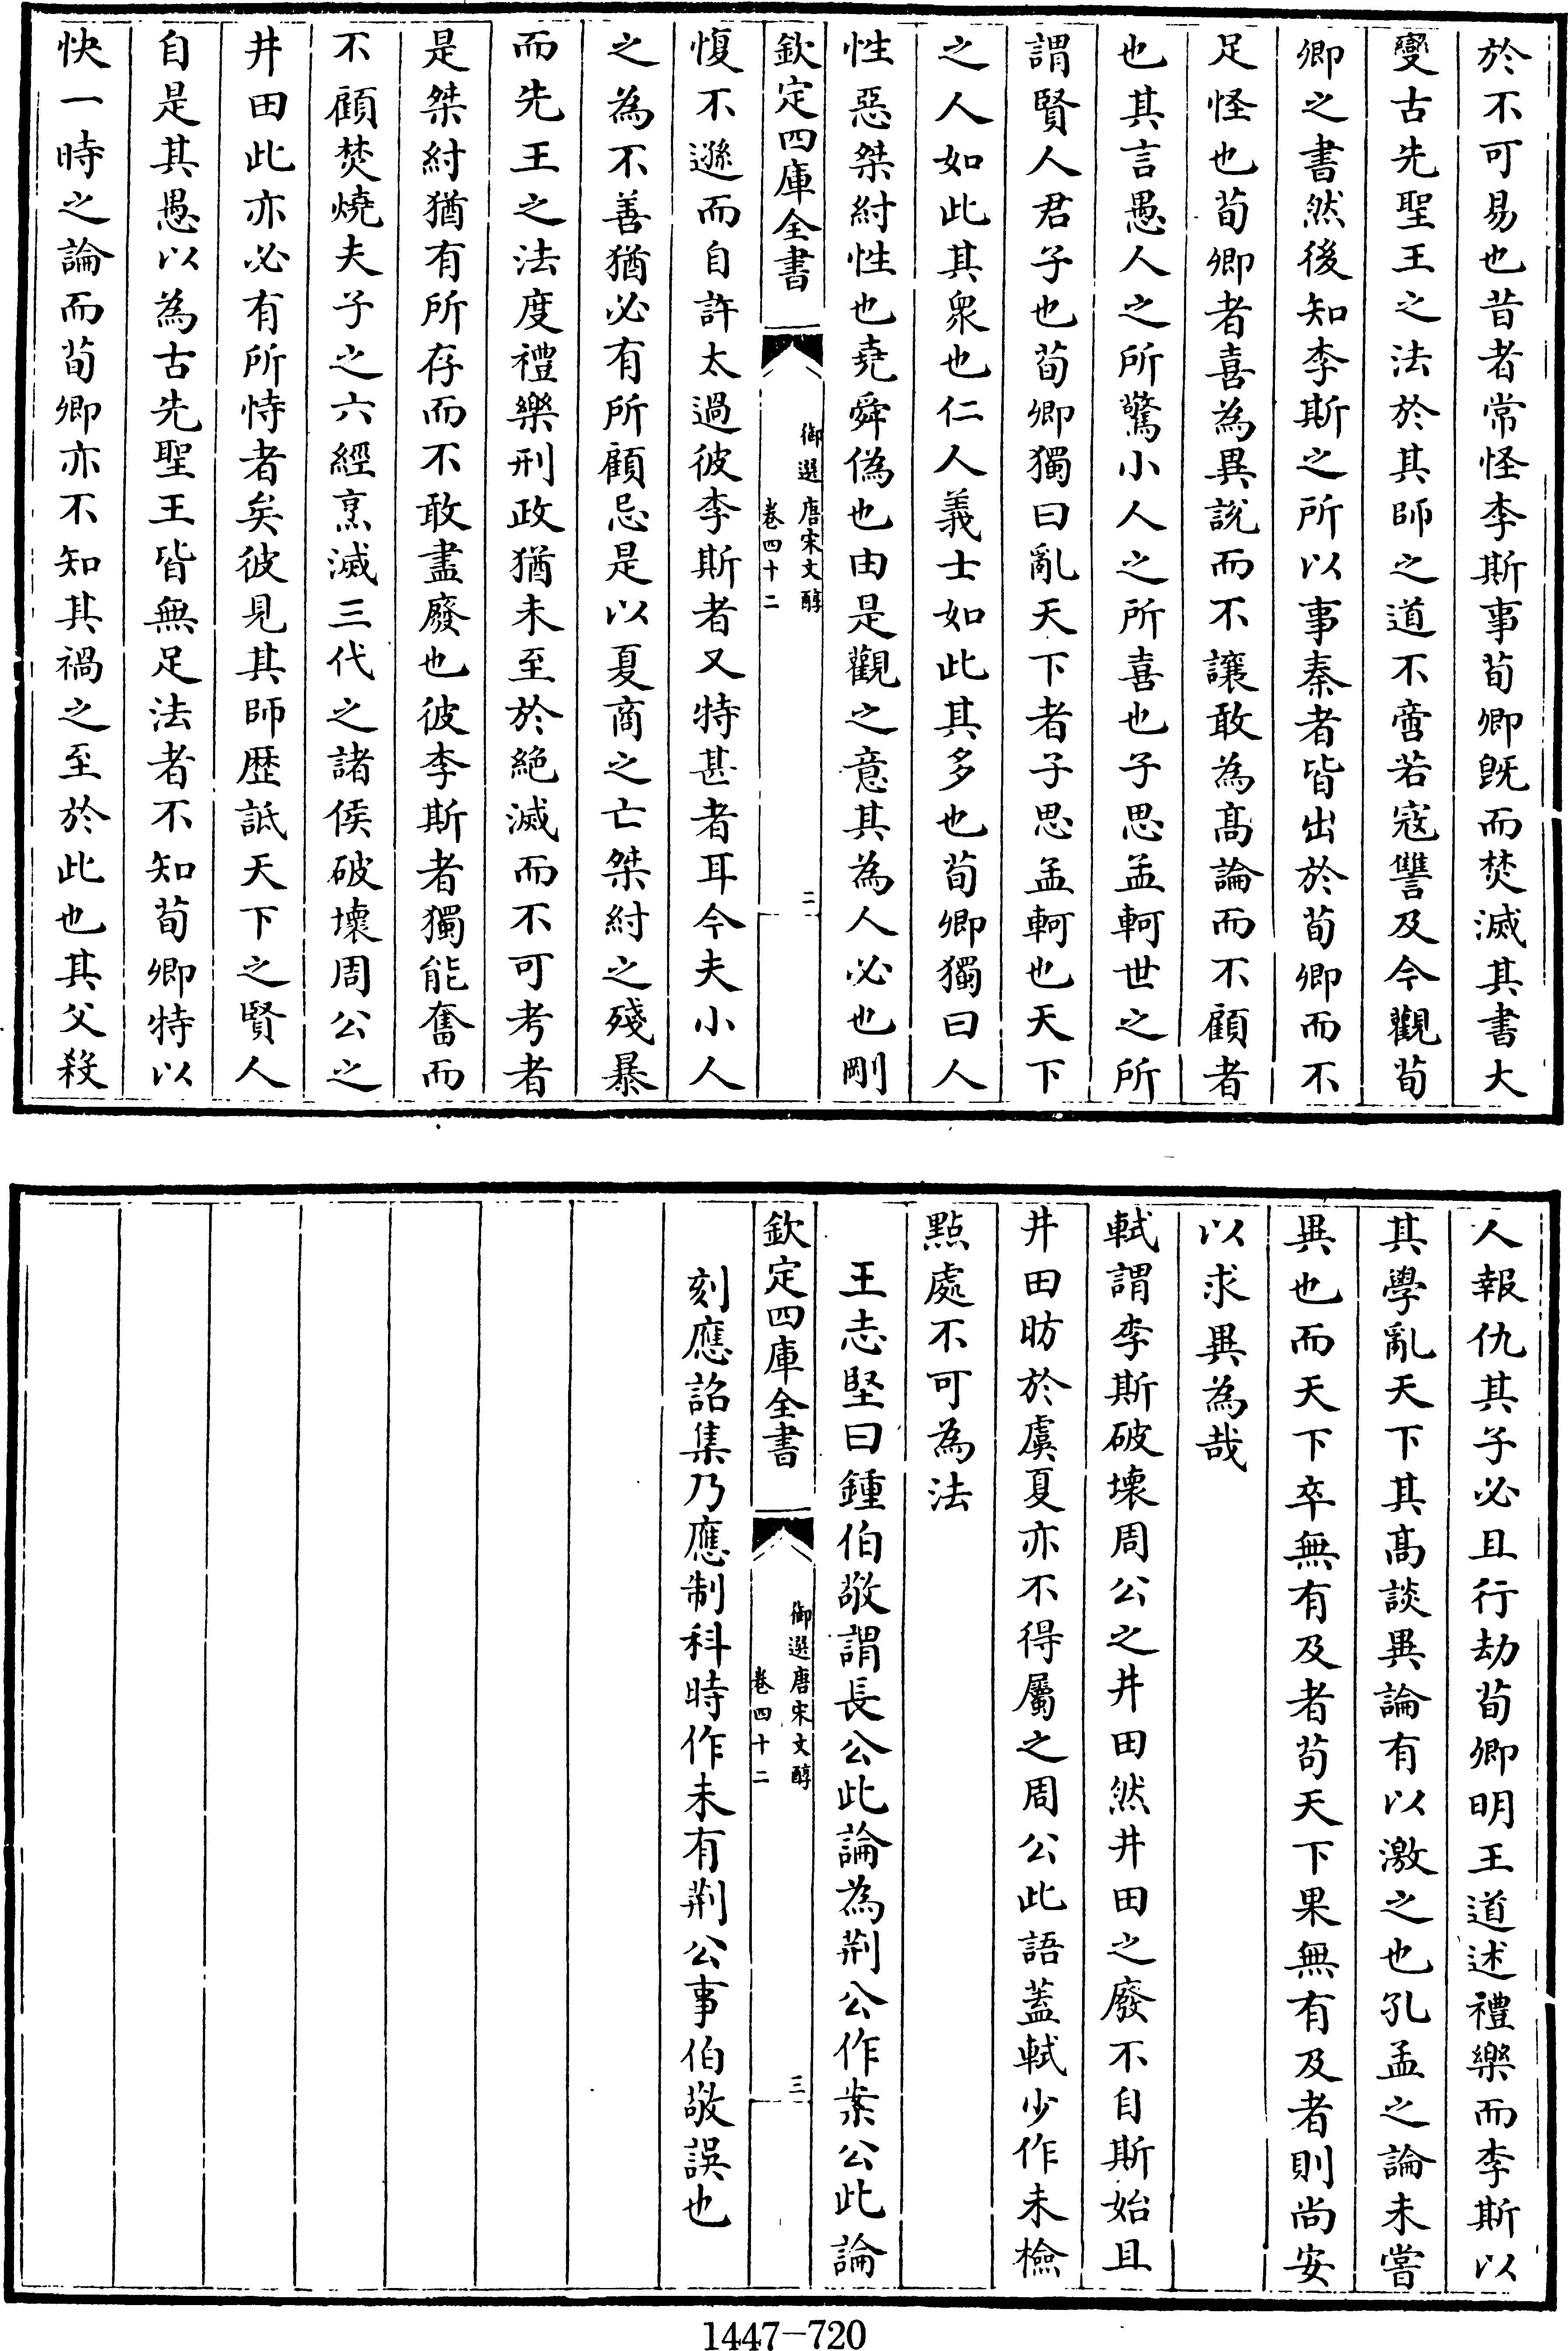 於不可易也昔者常怪李斯事荀卿旣而焚滅其書大
變古先聖王之法於其師之道不啻若寇讐及今觀荀
卿之書然後知李斯之所以事秦者皆出於荀卿而不
足怪也荀卿者喜為異說而不讓敢為髙論而不顧者
也其言愚人之所驚小人之所喜也子思孟軻世之所
謂賢人君子也荀卿獨曰亂天下者子思孟軻也天下
之人如此其衆也仁人義士如此其多也荀卿獨曰人
性惡桀紂性也堯舜偽也由是觀之意其為人必也剛
欽定四庫全書
御選唐宋文醇
卷四十二
二
愎不遜而自許太過彼李斯者又特甚者耳今夫小人
之為不善猶必有所顧忌是以夏商之亡桀紂之殘暴
而先王之法度禮樂刑政猶未至於絶滅而不可考者
是桀紂猶有所存而不敢盡廢也彼李斯者獨能奮而
不顧焚燒夫子之六經烹滅三代之諸侯破壞周公之
井田此亦必有所恃者矣彼見其師歴詆天下之賢人
自是其愚以為古先聖王皆無足法者不知荀卿特以
快一時之論而荀卿亦不知其禍之至於此也其父殺
人報仇其子必且行劫荀卿明王道述禮樂而李斯以
其學亂天下其髙談異論有以激之也孔孟之論未嘗
異也而天下卒無有及者茍天下果無有及者則尚安
以求異為哉
軾謂李斯破壞周公之井田然井田之廢不自斯始且
井田昉於虞夏亦不得屬之周公此語葢軾少作未檢
點處不可為法
王志堅曰鍾伯敬謂長公此論為荆公作案公此論
欽定四庫全書
御選唐宋文醇
卷四十二
三
刻應詔集乃應制科時作未有荆公事伯敬誤也
1447-720